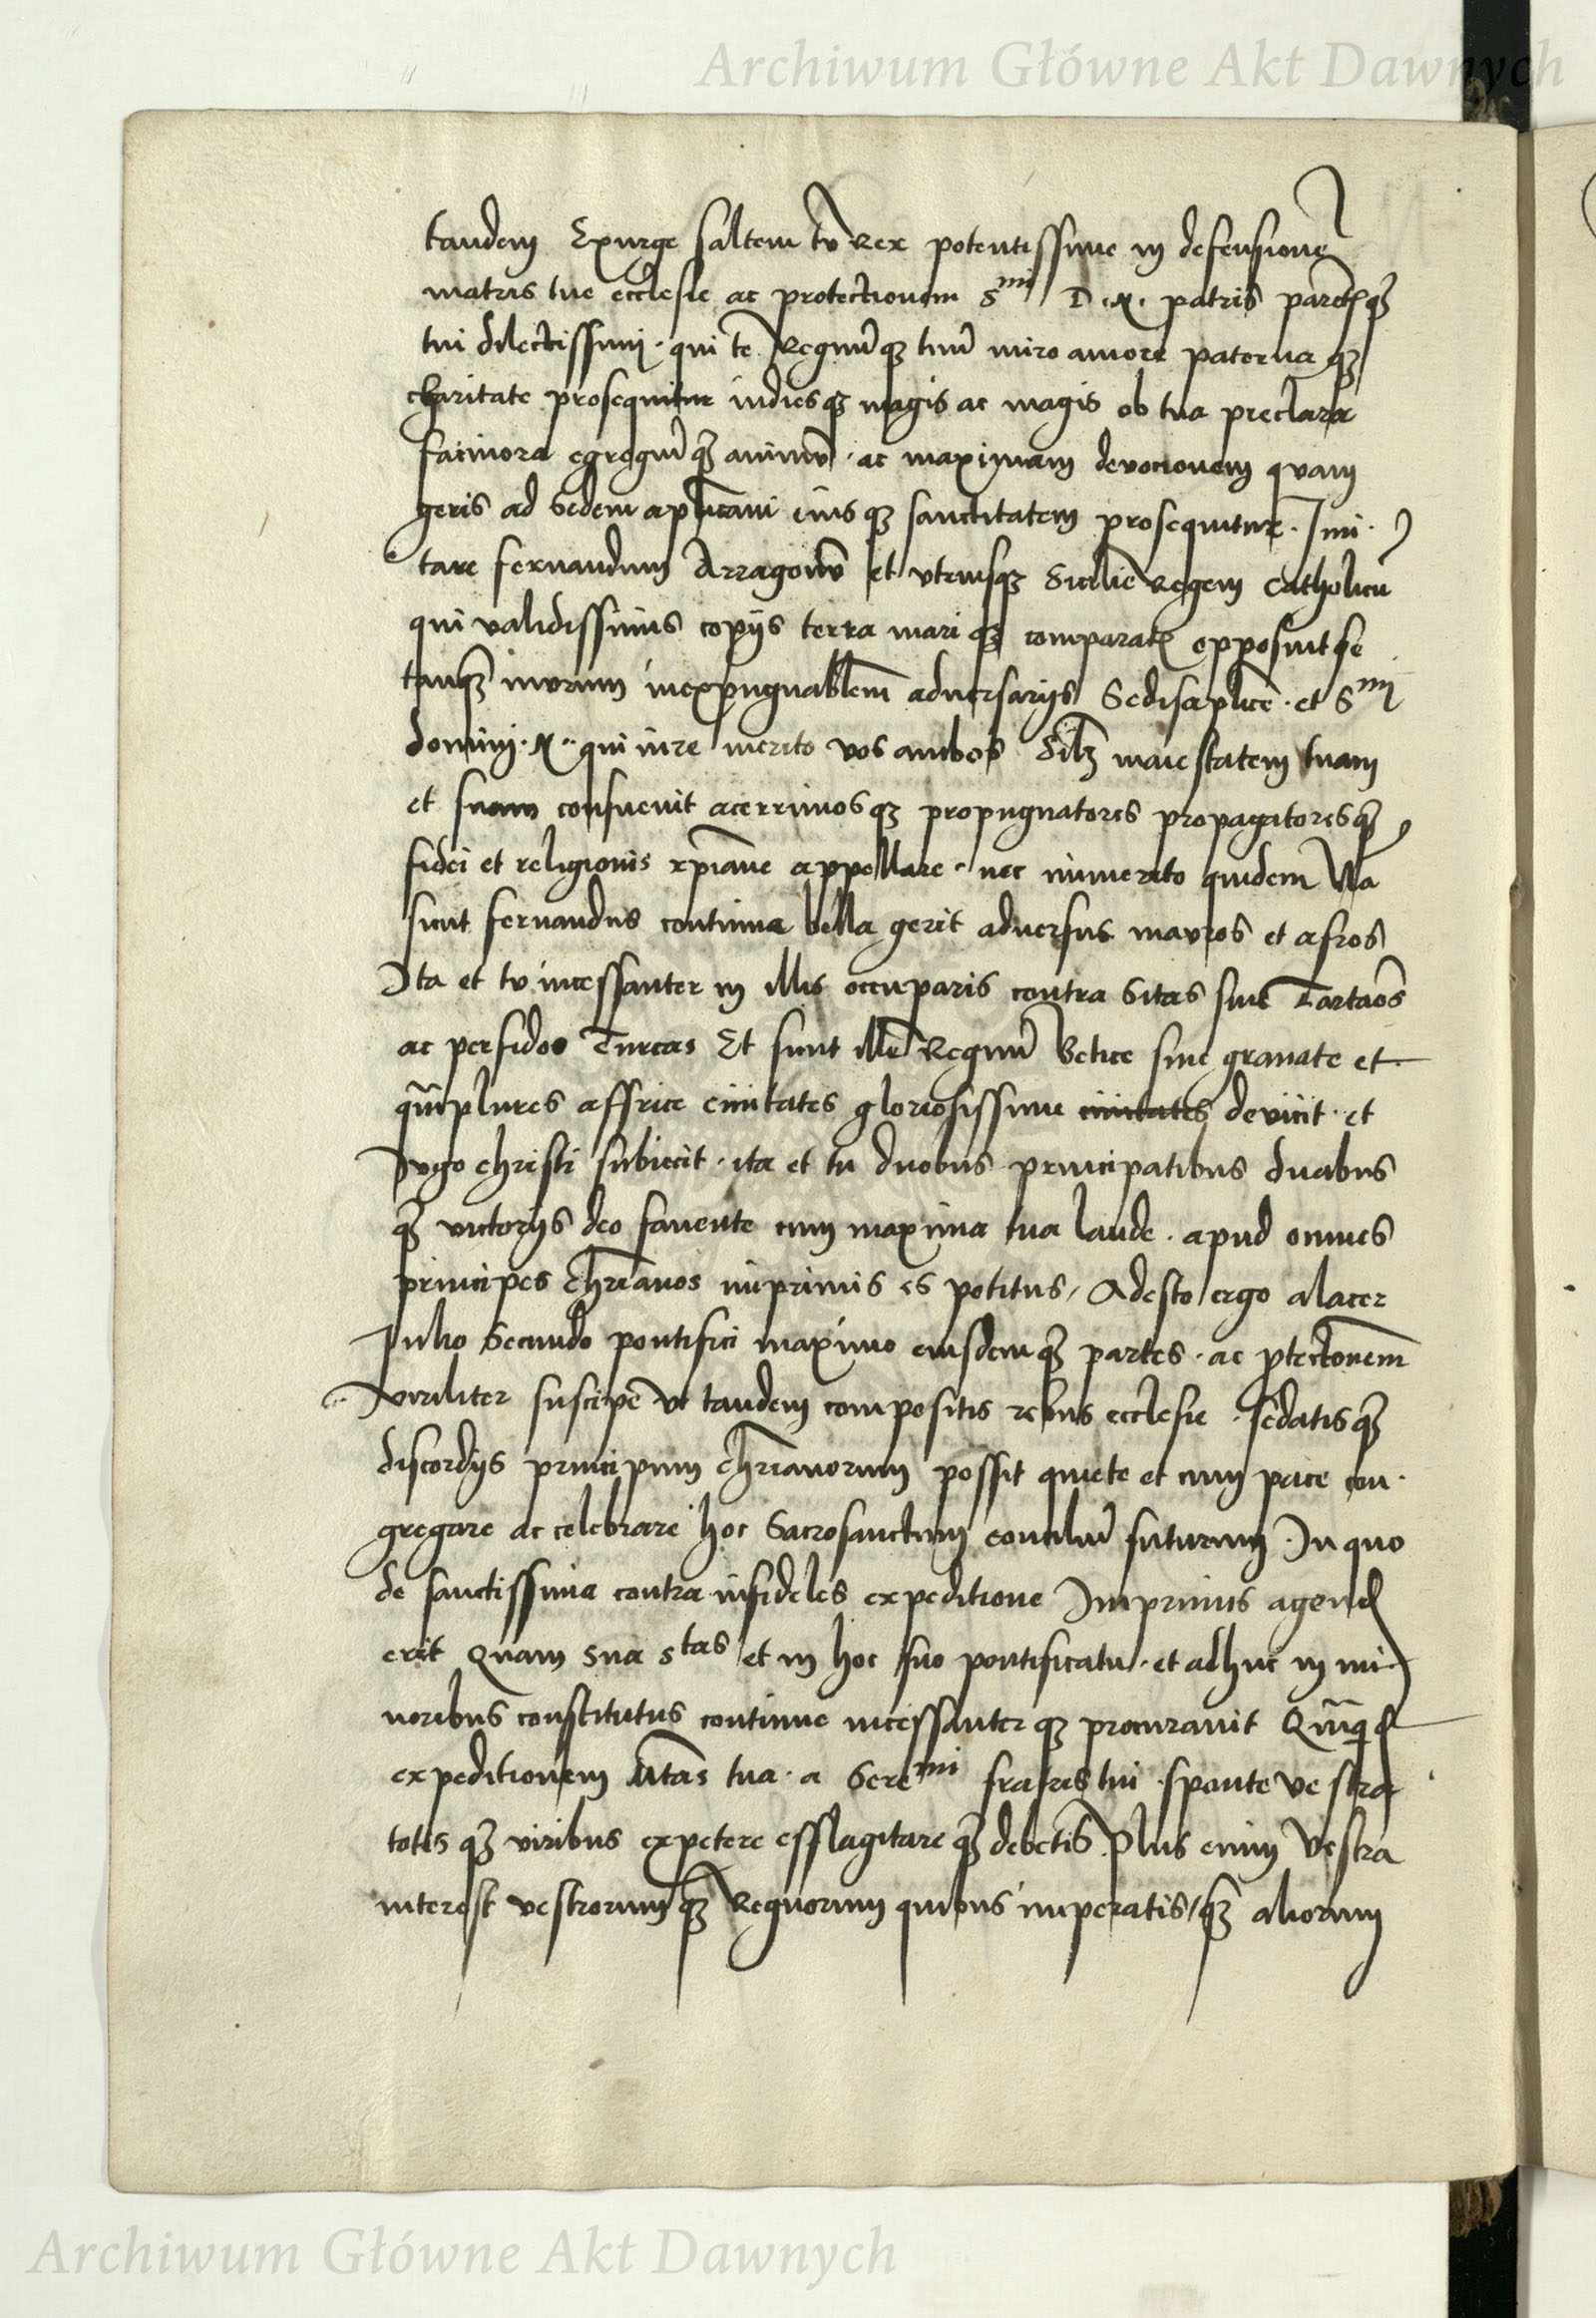 Archiwum Główne Akt Dawnych
tandem Exurge saltem tu Rex potentissime in defensionē
matris tue ecclesie ac protectionem Sᵐⁱ D. N. patris
tui dilectissimi · qui te Regnūqꝫ tuū miro amore paterna qꝫ
charitate prosequitur indiesqꝫ magis ac magis ob tua preclara
facinora egregiūqꝫ animū · ac maximam devotionem quam
geris ad Sedem aplicam eiusqꝫ sanctitatem prosequitur · Imi·
tare fernandum Arragonū et vtriusqꝫ Sicilie Regem Catholicū
qui validissimis copijs terra mariqꝫ opposuit se
tanqꝫ murum inexpugnablēm adversarijs Sedis aplicē · et Sᵐⁱ
domini · N · qui iure merito vos ambos Silꝫ maiestatem tuam
et suam consuevit acerrimosqꝫ propugnatores propagatoresqꝫ
fidei et religionis xp̄iane appellare · nec immerito quidem Nā
sicut fernandus continua bella gerit adversus mauros et afros
Ita et tu incessanter in illis occuparis contra Sitas sive Tartaōs
ac perfidos Turcas Et sicut ille Regnū Betice sive granate et
qm̄plures affrice civitates gloriosissime civitates devicit · et
Jugo christi subiecit · ita et tu duobus principatibus duabus
qꝫ victorijs deo favente cum maxima tua laude · apud omnes
principes chrianos imprimis es potitus / Adesto ergo alacer
Julio Secundo pontifici maximo eiusdemqꝫ partes · ac ptectionem
viriliter suscipe vt tandem compositis rebus ecclesie · sedatisqꝫ
discordijs principum chrianorum possit quiete et cum pace con·
gregare ac celebrare hoc Sacrosanctum conciliū futurum · In quo
de sanctissima contra infideles expeditione Imprimis agend
erit Quam sua Sᵗᵃˢ et in hoc suo pontificatu · et adhuc in mi·
noribus constitutus continue incessanterqꝫ procuravit
expeditionem Mtas tua · a Sereᵐⁱ fratris tui · sponte vestra
totisqꝫ viribus expetere efflagitareqꝫ debetis Plus enim Vestra
interest vestrorumqꝫ Regnorum quibus imperatis / qꝫ aliorum
Archiwum Główne Akt Dawnych